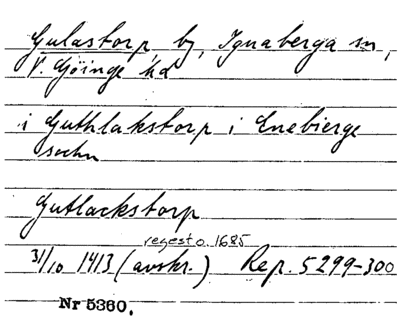 Gulastorp, by, Ignaberga sn,
V. Göinge hd
i Guthlakstorp i Enebierge
sochn
Gutlackstorp
regest o. 1685
31/10 1413 (avskr.) Rep. 5299-300
Nr 5360.